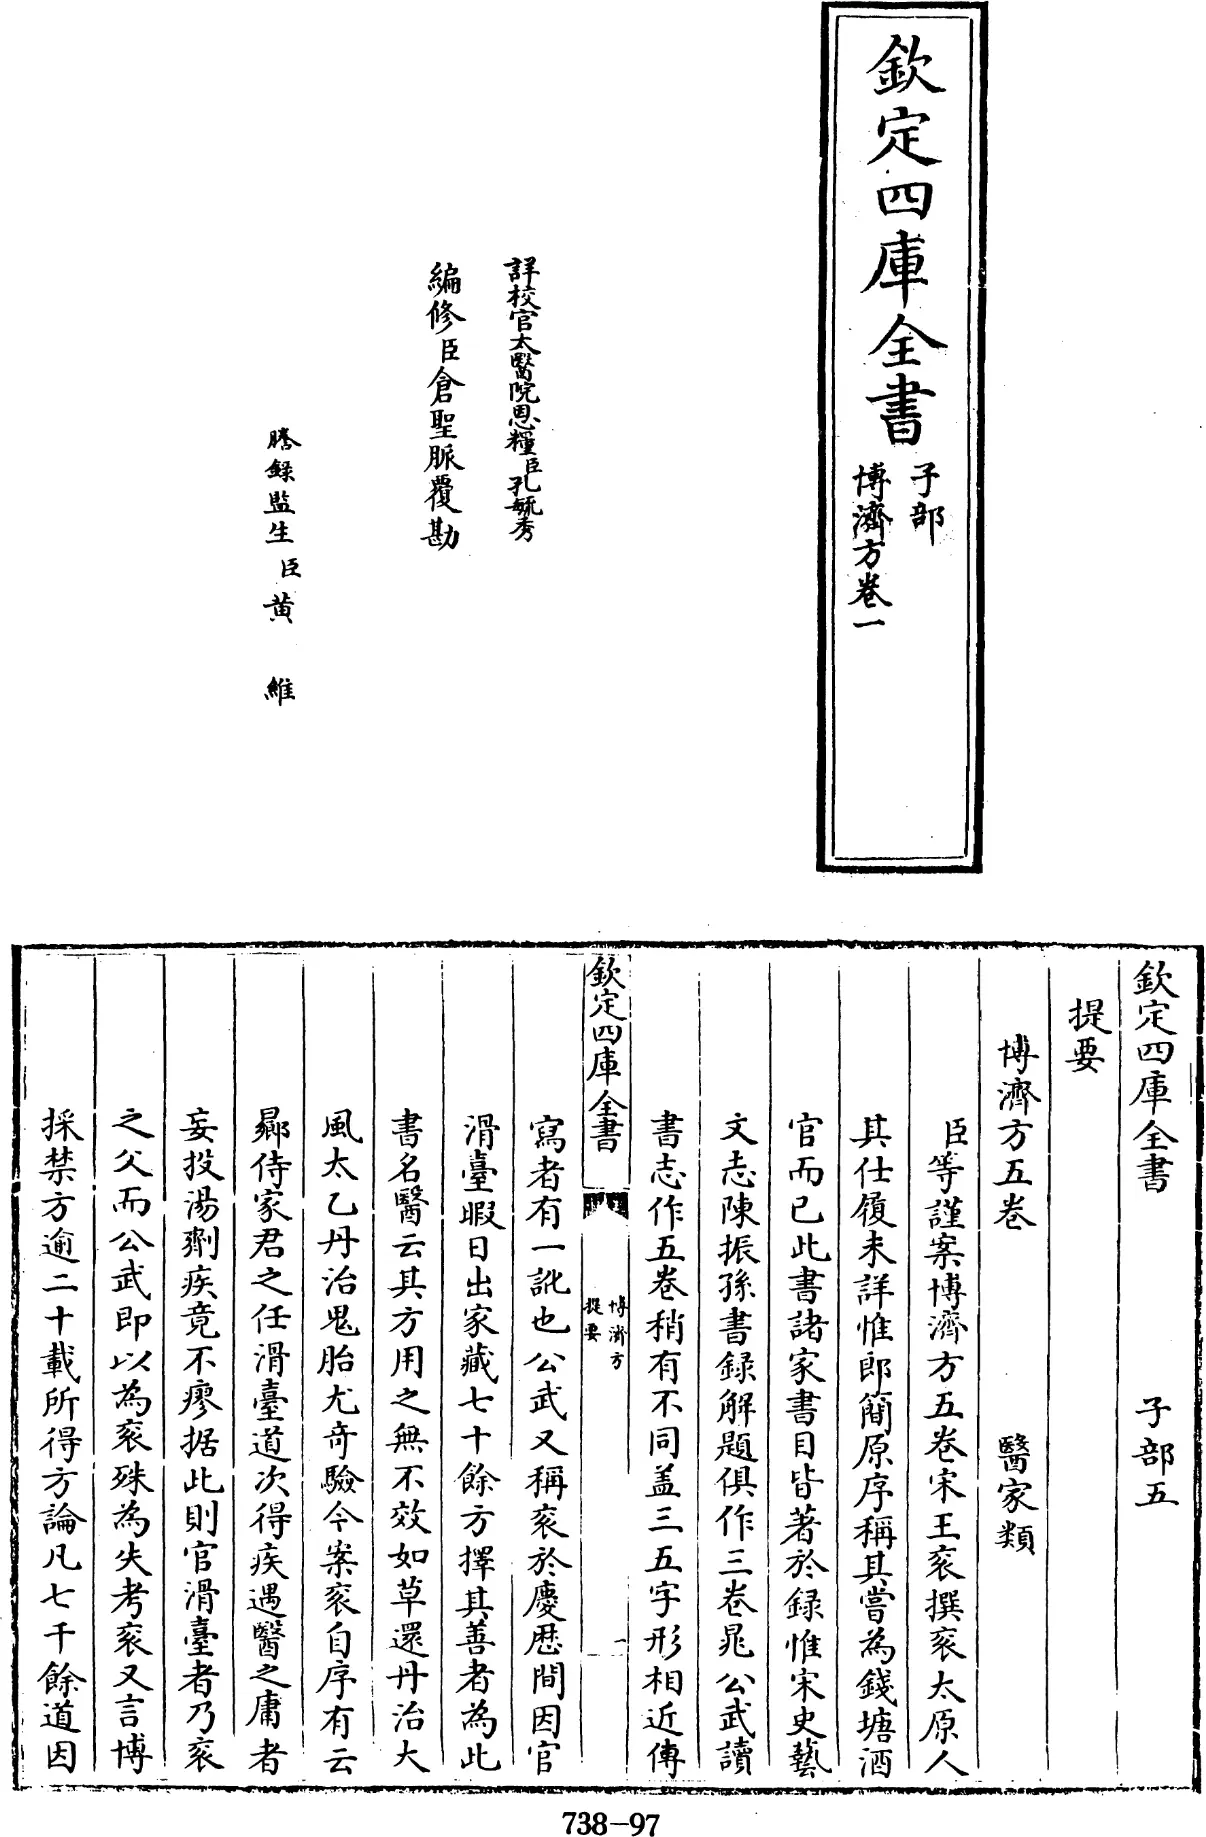 欽定四庫全書
子部
博濟方卷一
詳校官太醫院恩糧臣孔毓秀
編修臣倉聖脈覆勘
謄錄監生臣黃維
欽定四庫全書 子部五
提要
博濟方五卷 醫家類
臣等謹案博濟方五卷宋王衮撰衮太原人
其仕履未詳惟郎簡原序稱其嘗為錢塘酒
官而已此書諸家書目皆著於録惟宋史藝
文志陳振孫書録解題俱作三卷晁公武讀
書志作五卷稍有不同蓋三五字形相近傳
欽定四庫全書
博濟方
提要
一
寫者有一訛也公武又稱衮於慶厯間因官
滑臺暇日出家藏七十餘方擇其善者為此
書名醫云其方用之無不效如草還丹治大
風太乙丹治鬼胎尤奇驗今案衮自序有云
曏侍家君之任滑臺道次得疾遇醫之庸者
妄投湯劑疾竟不瘳据此則官滑臺者乃衮
之父而公武即以為衮殊為失考衮又言博
採禁方逾二十載所得方論凡七千餘道因
738-97